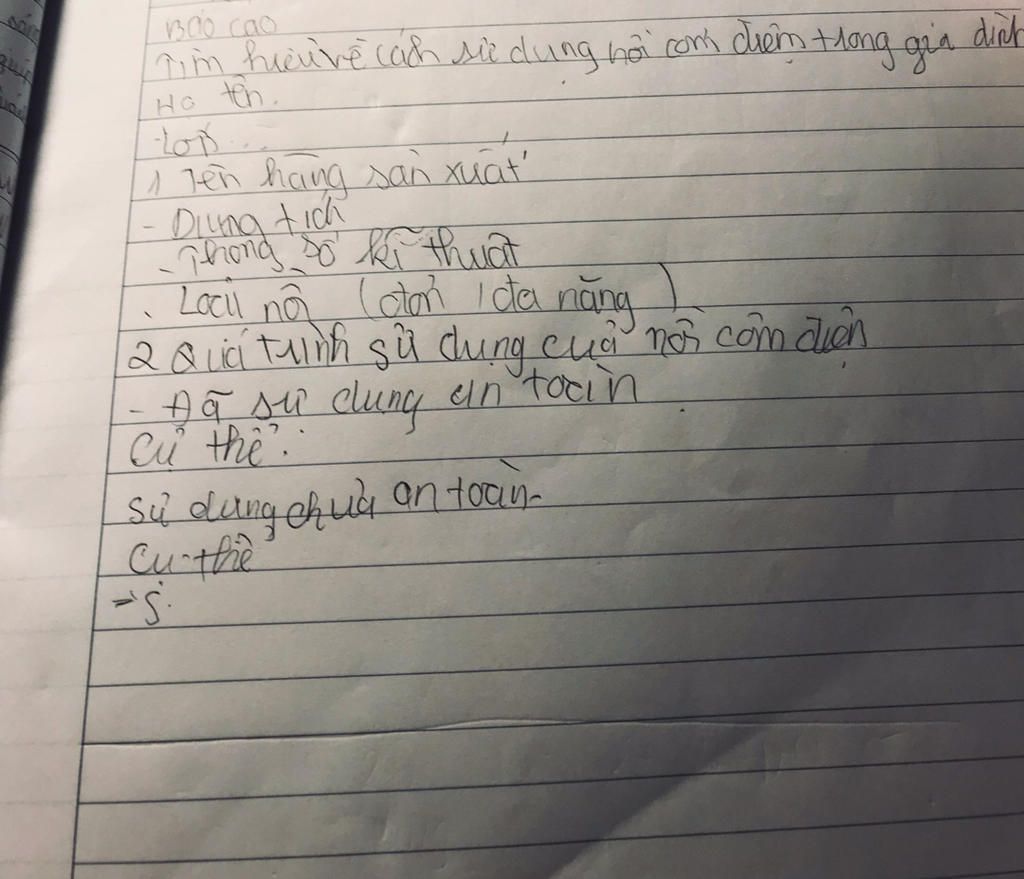 Báo cao
Tìm hiểu về cách sử dung nồi cơm điện trong gia đình
Họ tên.
Lớp...
1 Tên hãng sản xuất
- Dung tích
- Thong số kĩ thuật
. Loại nồi (đơn / đa năng)
2 Quá trình sử dụng của nồi cơm điện
- Đã sử dung an toàn
Cụ thể:
Sử dung chưa an toàn-
Cụ thể
- S.